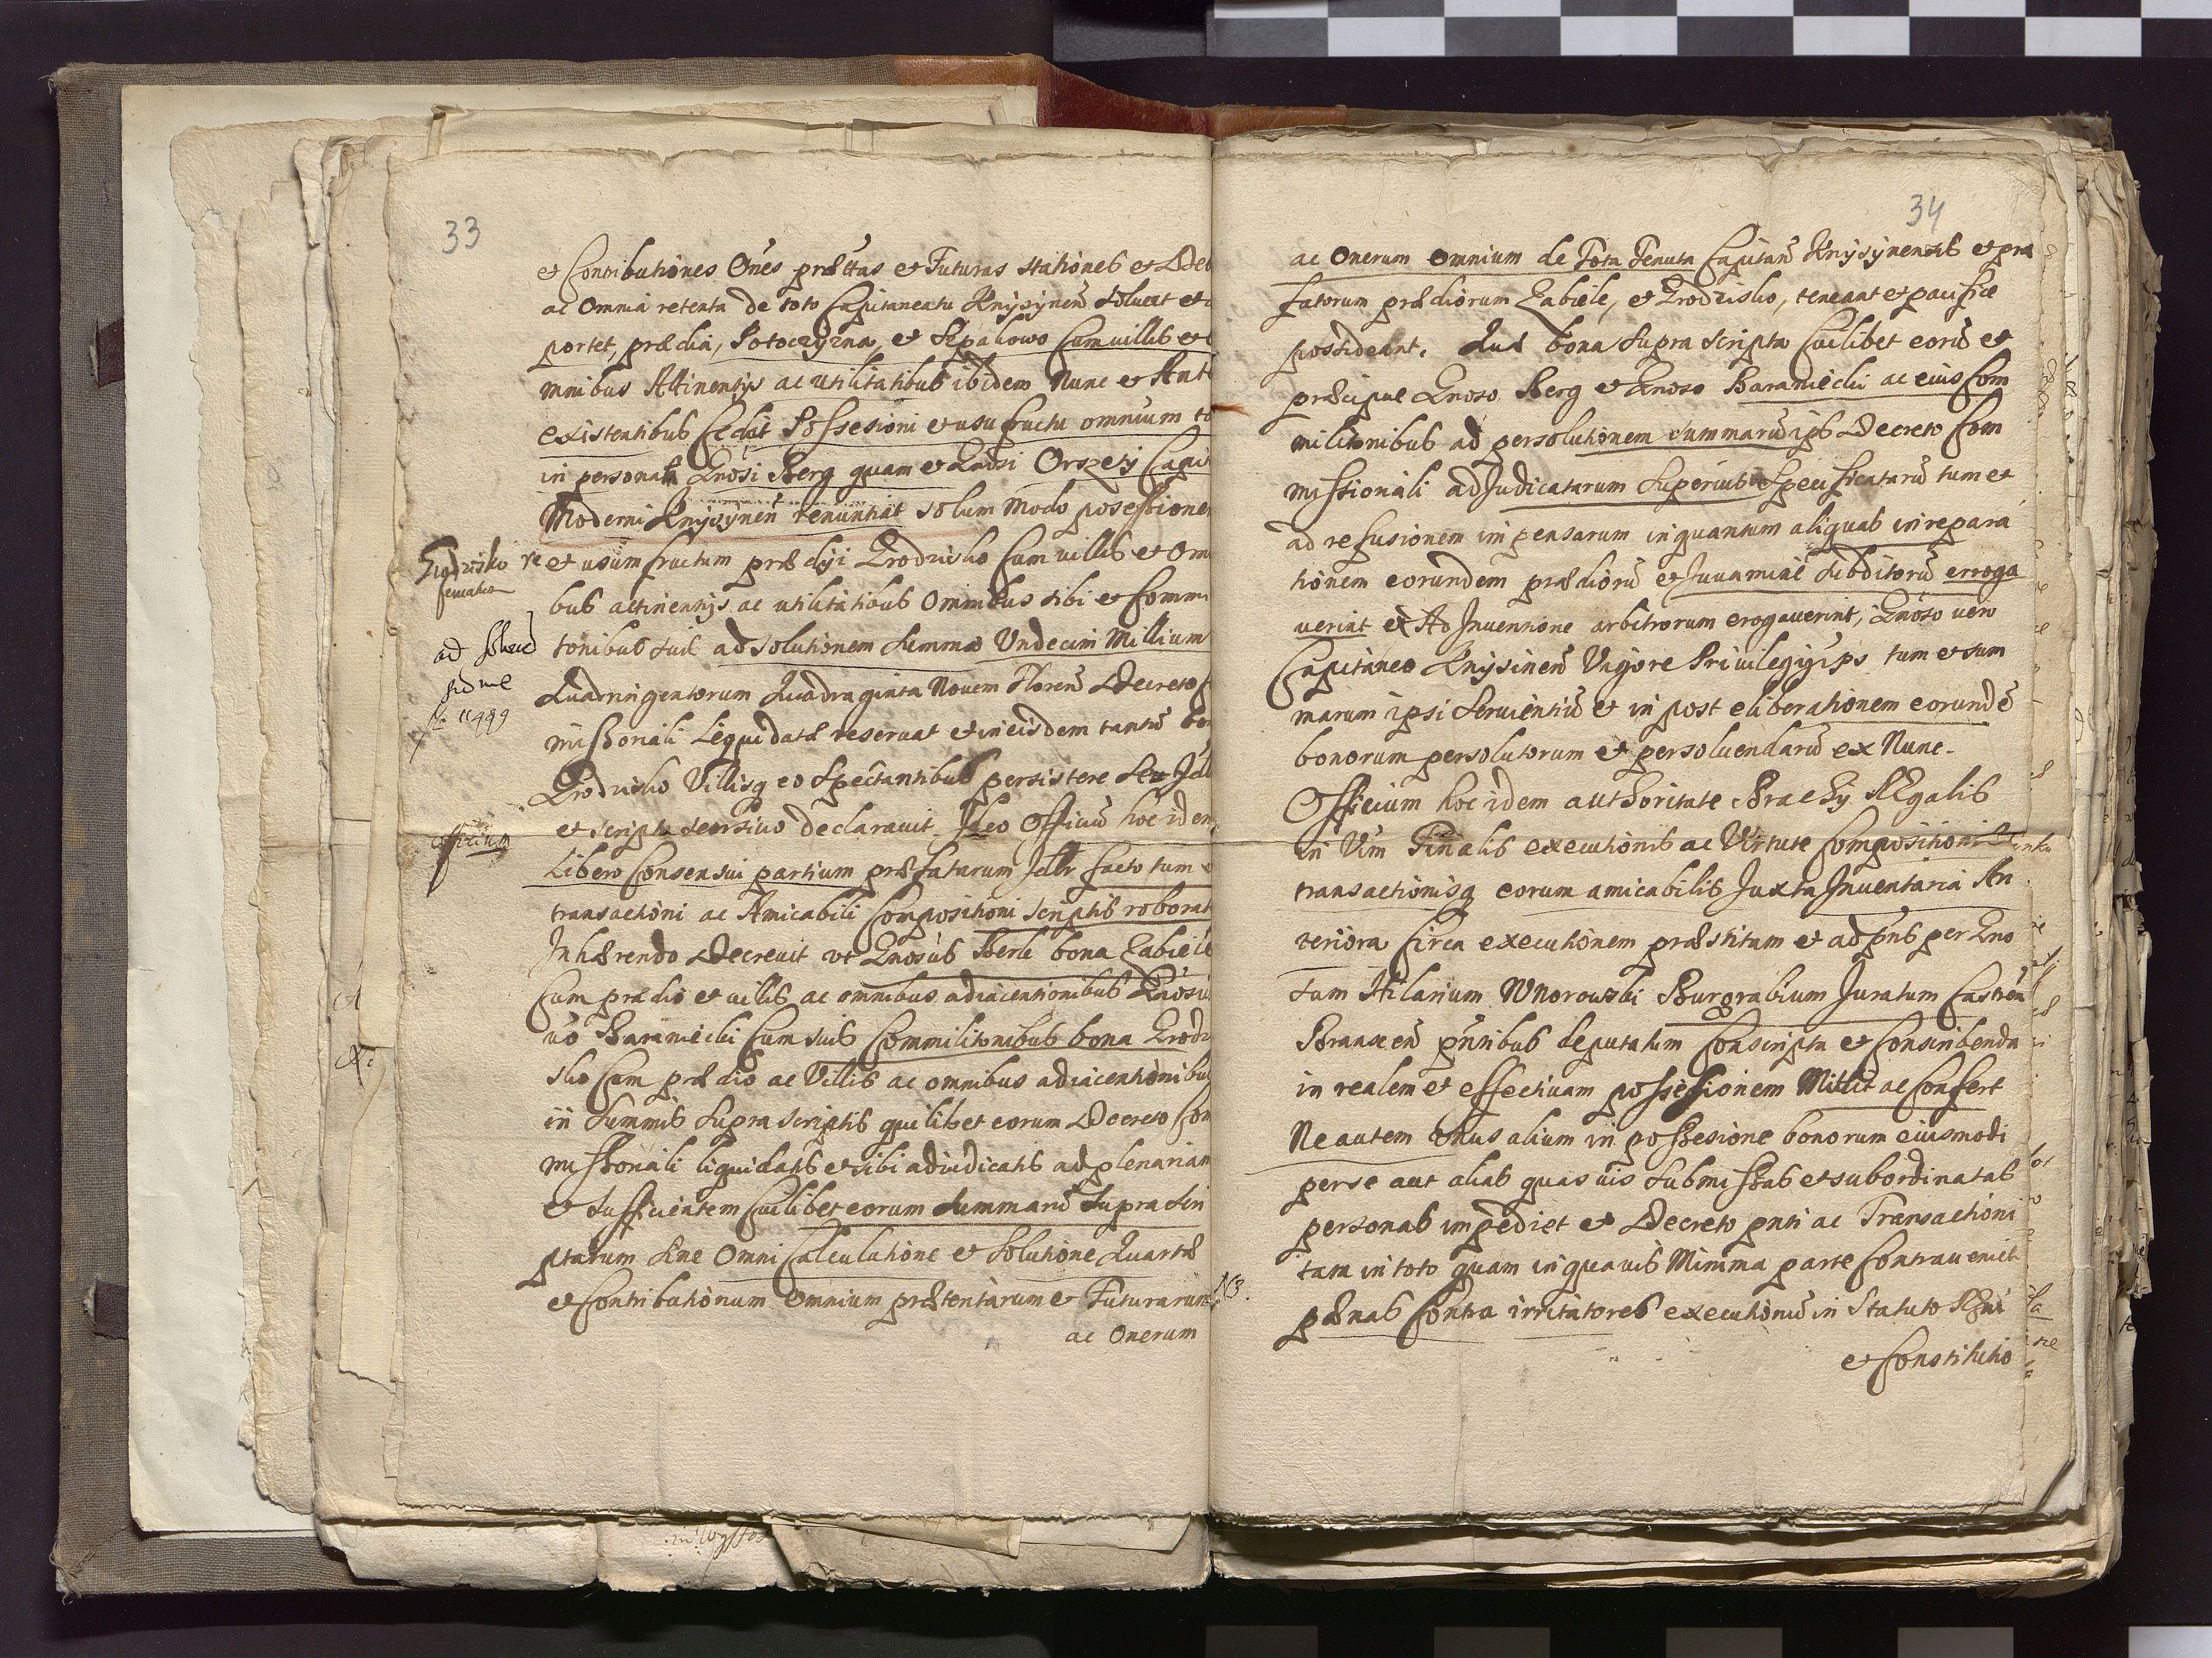 33
et Contributiones Oñes prættas et Futuras stationes et
ac Omnia retenta de toto Capitaneatu Knÿsÿneñ soluat et
portet, prædia, Potoczÿzna, et Szpakowo Cum villis et
mnibus Attinentÿs ac utilitatibus ibidem Nunc et
existentibus Cedat Possesioni et usu fructu omnium
in personam Gnosi Berg quam et Gnosi Orszetÿ
Moderni Knÿsÿneñ renuntiat solum Modo
Grodzisko re
seruatur
et usum fructum prædÿi Grodzisko Cum villis et Om
bus attinentÿs ac utilitatibus Omnibus sibi et Commi
tonibus suis ad solutionem summæ Undecim Millium
Quadringentorum Quadraginta Novem Floren̄ Decreto
missionali Liquidatæ reseruat et in eisdem tantū
Grodzisko Villisq eo Spectantibus persistere
officium
et scripto seorsiuo declarauit. Ideo Officiū hoc idem
Libero Consensui partium præfatarum Idlr facto tum
transactioni ac Amicabili Compositioni scriptis roborat
Inhærendo Decreuit vt Gnosus Berk bona Zabiele
Cum prædio et villis ac omnibus adiacentionibus
vō Baraniecki Cum suis Commilitonibus bona Grodzi
sko Cum prædio ac Villis ac omnibus adiacentionibus
in Summis Supra scriptis quilibet eorum Decreto Com
missionali liquidatis et sibi adiudicatis ad plenariam
et Sufficientem Cuilibet eorum Summarū Supra scri
ptarum Sine Omni Calculatione et Solutione Quartæ
et Contributionum Omnium prætentarum et Futurarum
ac Onerum
34
ac Onerum Omnium de Tota Tenuta Capitan̄ Knÿsÿnensis et præ
fatorum prædiorum Zabiele, et Grodzisko, teneant et pacifice
possideant. Quæ bona Supra scripta Cuilibet eorū et
præcipue Gnoso Berg et Gnoso Baraniecki ac eius Com
militonibus ad persolutionem Summarū ips Decreto Com
missionali adJudicatarum Superius Specificatarū tum et
ad refusionem impensarum inquantum aliquas in repara
tionem eorundem prædiorū et Juuamine Subditorū erroga
uerint ex Ad Inuentione arbitrorum erogauerint, Gnoso vero
Capitaneo Knÿsineñ Vigore Priuilegÿ ips tum et sum
marum ipsi Seruientiū et in post eliberationem eorundē
bonorum persolutorum et persoluendarū ex Nunc.
Officium hoc idem authoritate Brachÿ REgalis
in Vim Finalis executionis ac Virtute Compositionis
transactionisq eorum amicabilis Juxta Inuentaria An
teriora Circa executionem præstitam et ad pns per Gno
sum Hilarium Wnorowski Burgrabium Juratum Castreñ
Branseñ pn̄tibus deputatum Conscripta et Conscribenda
in realem et effectiuam possessionem Mittit ac Confert
Ne autem Unus alium in possesione bonorum eiusmodi
per se aut alias quas uis Submissas et subordinatas
personas impediet et Decreto pnti ac Transactioni
tam in toto quam in quauis Minima parte Contraueniet
NB.
pænas Contra irritatores executionū in Statuto Rgni
et Constitutio